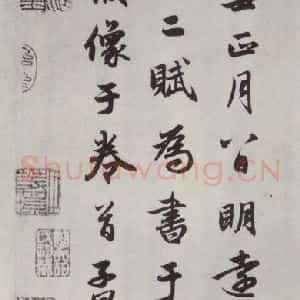 正月八日明遠
二賦為書于
像于卷首子
Shufawang.CN